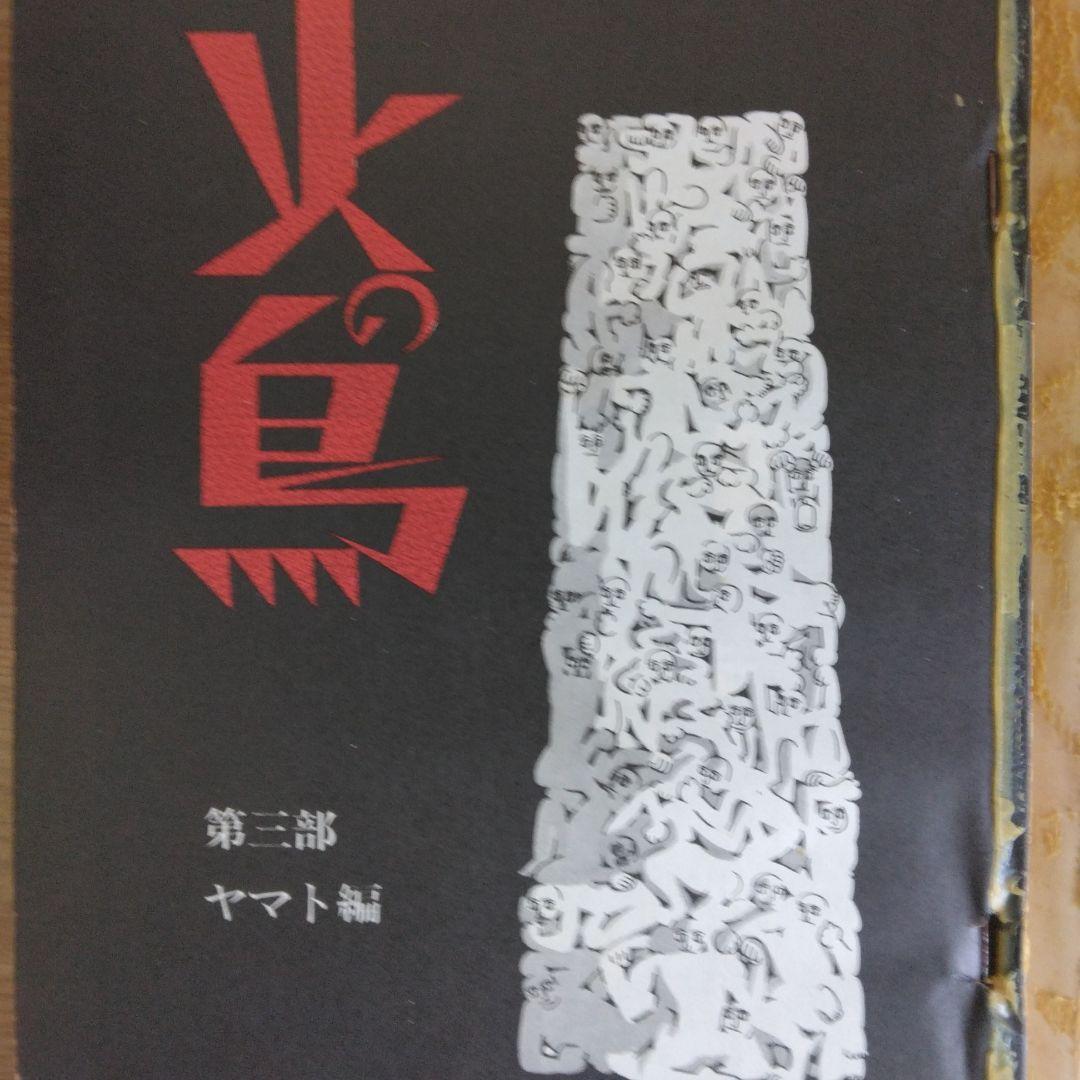 火の鳥
第三部
ヤマト編